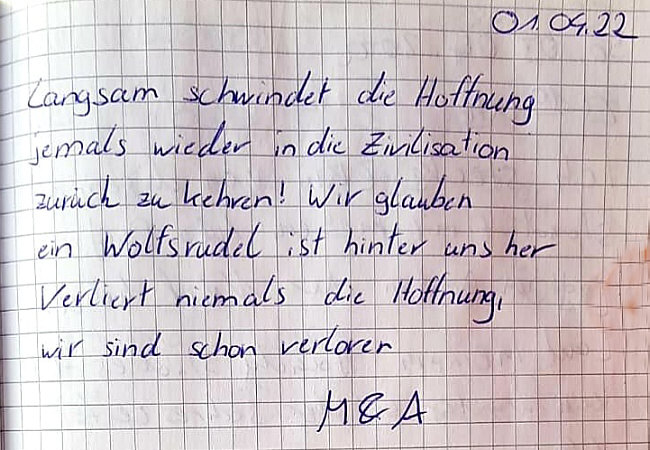 01.04.22
Langsam schwindet die Hoffnung
jemals wieder in die Zivilisation
zurück zu kehren! Wir glauben
ein Wolfsrudel ist hinter uns her
Verliert niemals die Hoffnung,
wir sind schon verloren
M & A